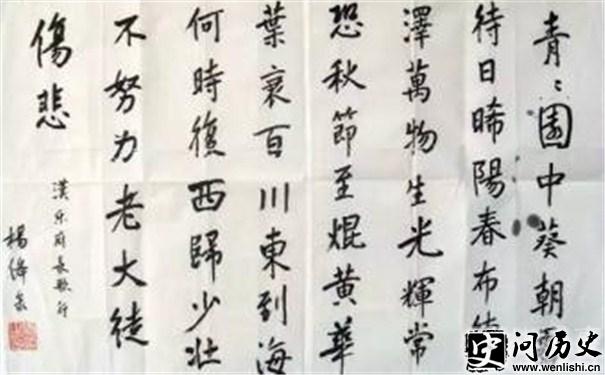 青〻園中葵朝
待日晞陽春布德
澤萬物生光輝常
恐秋節至焜黃華
葉衰百川東到海
何時復西歸少壯
不努力老大徒
傷悲
漢乐府長歌行
楊絳
史 问历史
www.wenlishi.cn